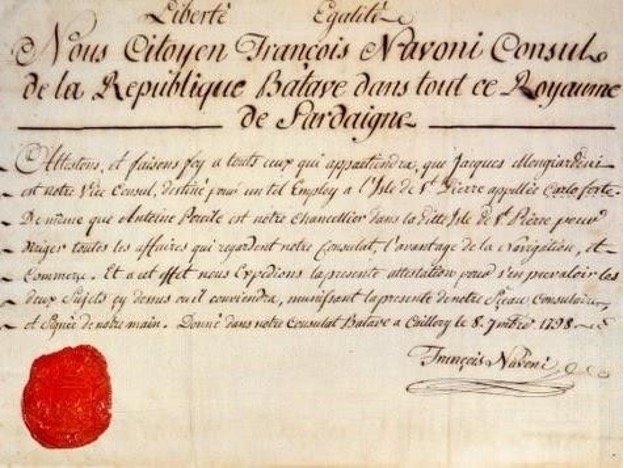 Liberté Egalité
Nous Citoyen François Navoni Consul
de la Republique Batave dans tout ce Royaume
de Sardaigne
Attestons, et faisons foy a touts ceux qui appartiendra, que Jacques Mongiardini
est notre Vice Consul, destiné pour un tel Employ a l'Isle de St. Pierre appellée Carloforte.
De même que Antoine Porcile est nôtre Chancellier dans la ditte Isle de St. Pierre pour
diriger toutes les affaires qui regardent notre Consulat, l'avantage de la Navigation, et
Commerce. Et a cet effet nous Expedions la presente attestation pour s'en prevaloir les
deux Sujets cy dessus ou il conviendra, munissant la presente de notre Sceau Consulaire,
et Signée de notre main. Donné dans notre Consulat Batave a Caillery le 8. 7mbre 1798
François Navoni